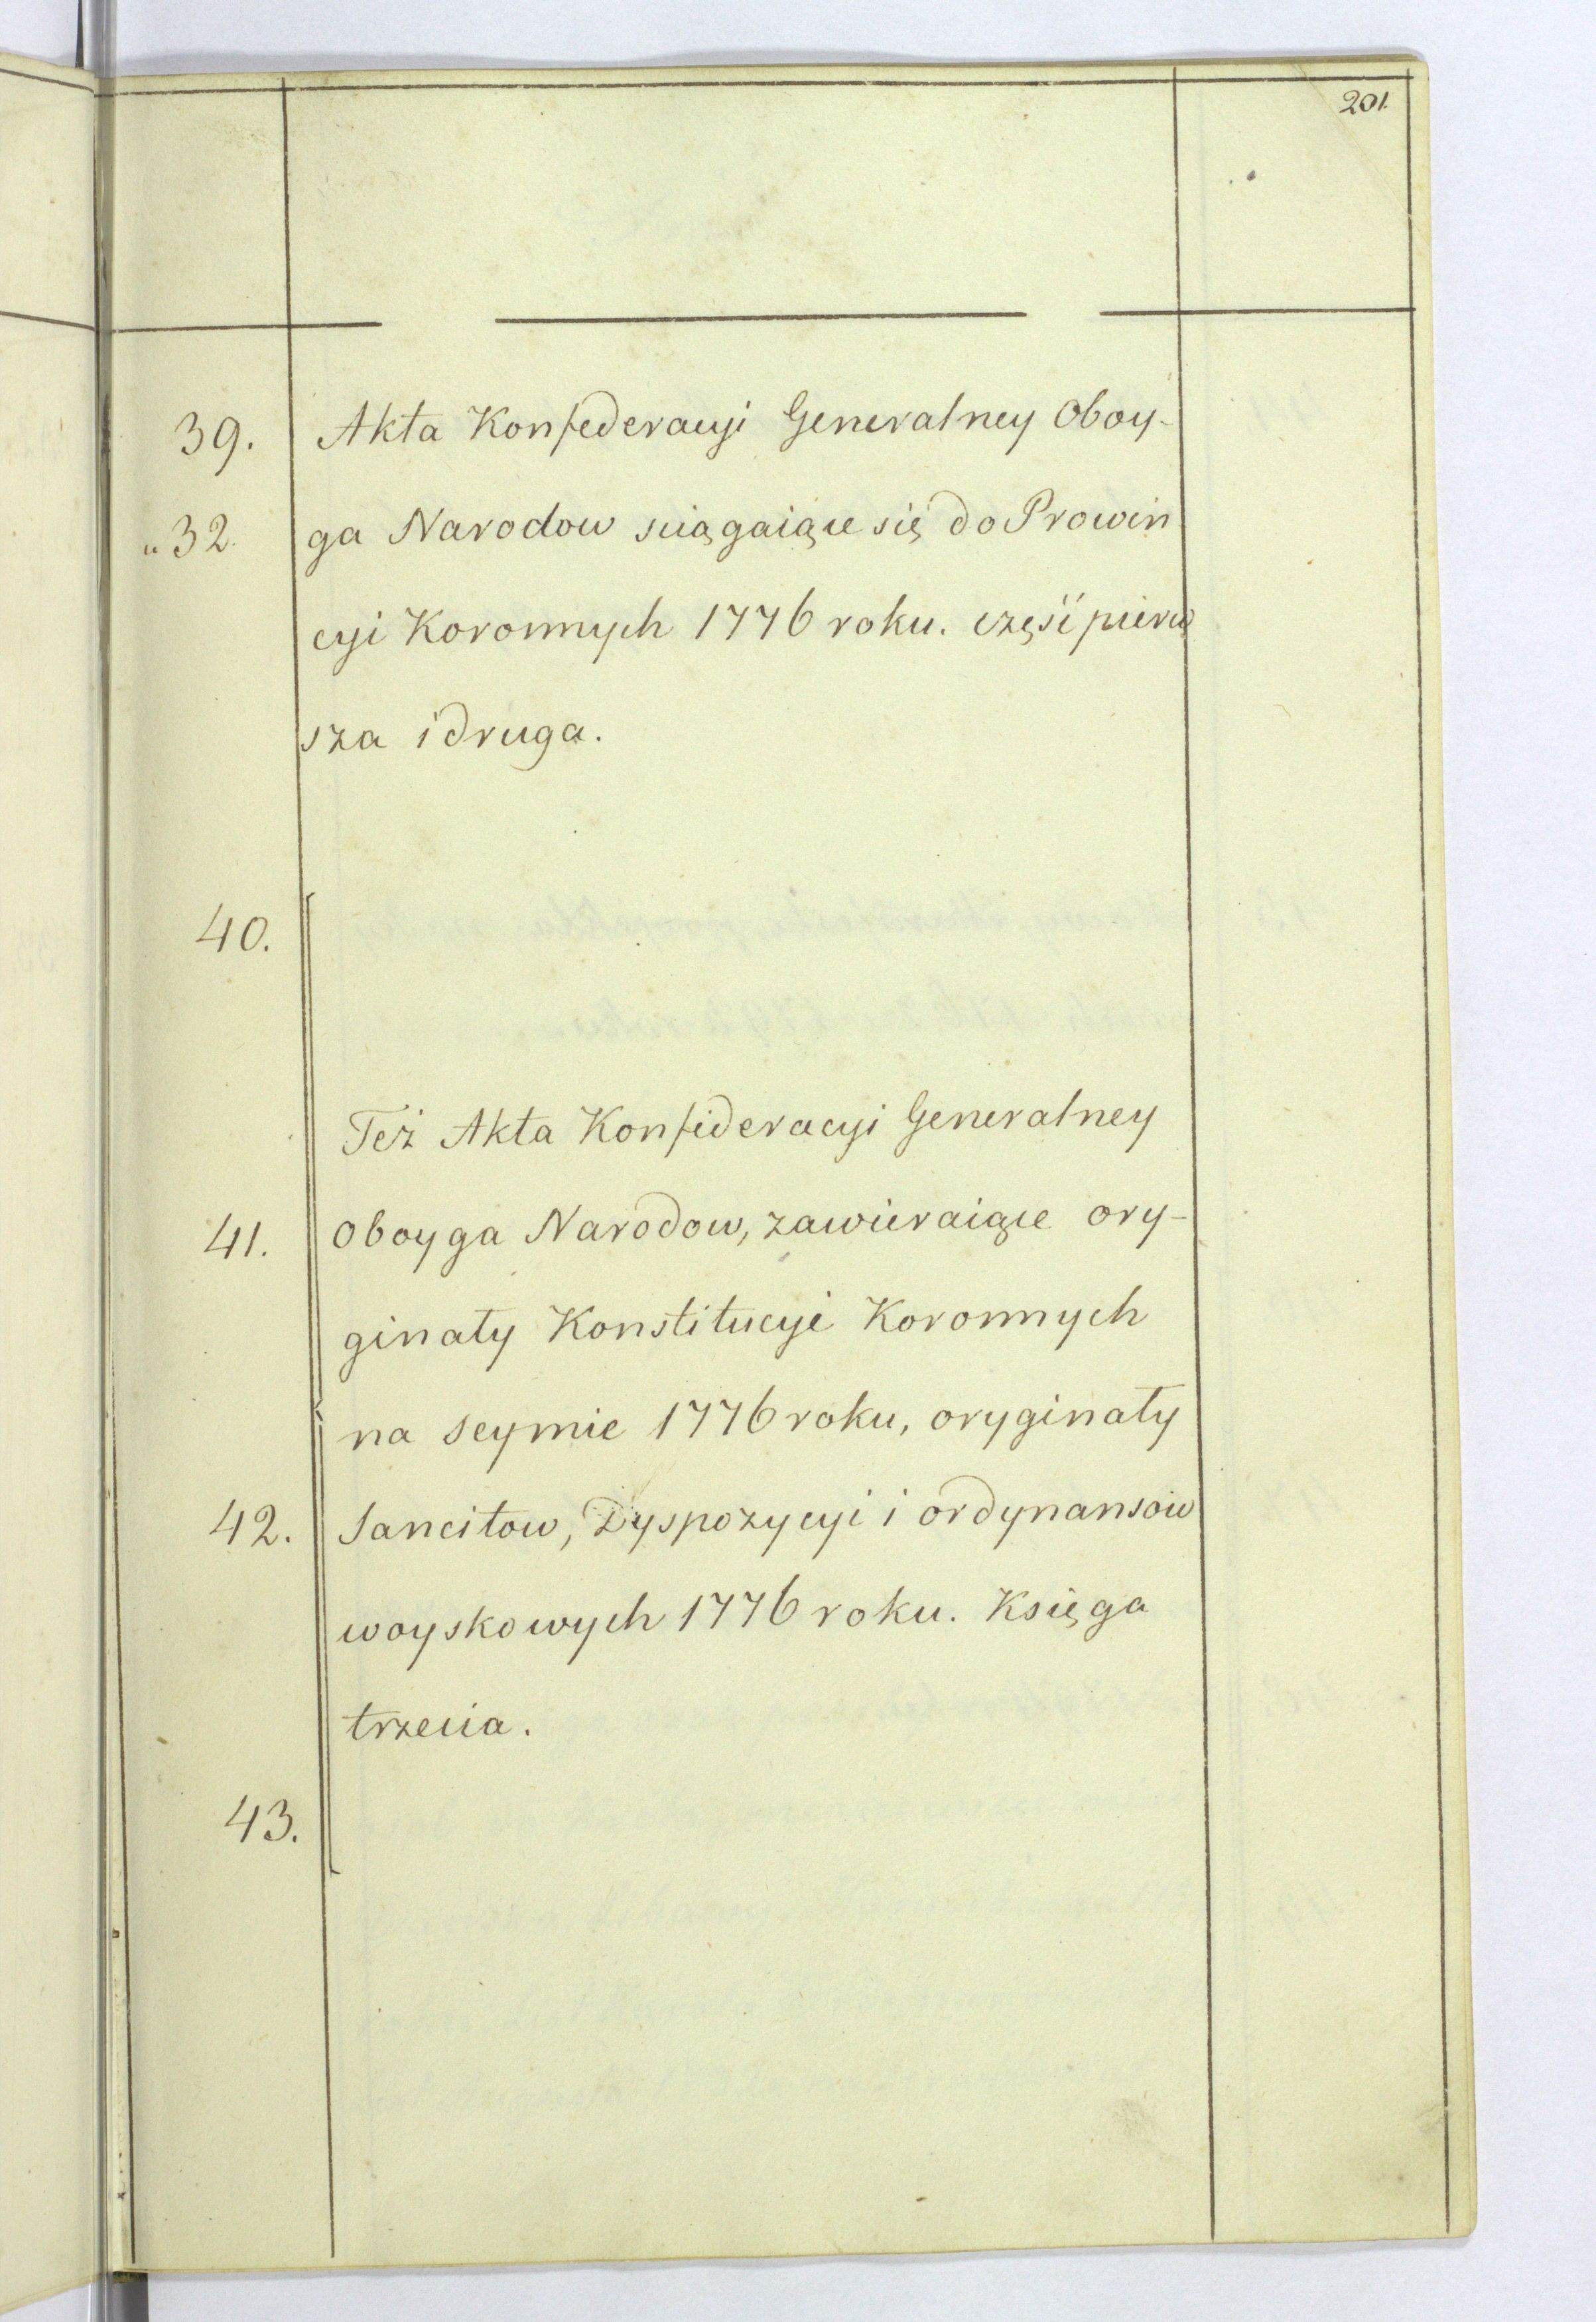 201.
39. Akta Konfederacyi Generalney Oboy-
„32. ga Narodow sciągaiące się do Prowin
cyi Koronnych 1776 roku. część pierw
sza i druga.
40.
Też Akta Konfederacyi Generalney
41. Oboyga Narodow, zawieraiące ory-
ginały Konstitucyi Koronnych
na Seymie 1776 roku, oryginały
42. Sancitow, Dyspozycyi i ordynansow
woyskowych 1776 roku. Księga
trzecia.
43.